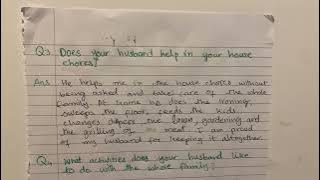 Q3 Does your husband help in your house
chores?
Ans He helps me in the house chores without
being asked and takes care of the whole
family. At home he does the ironing,
sweeps the floor, feeds the kids,
changes diapers the gardening and
the grilling of meat I am proud
of my husband for keeping it altogether.
Q4 What activities does your husband like
to do with the whole family?